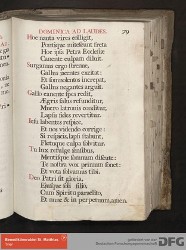 DOMINICA AD LAUDES. 79
Hoc nauta vires colligit,
Pontique mitescunt freta
Hoc ipsa Petra Ecclesiæ
Canente culpam diluit.
Surgamus ergo strenue,
Gallus jacentes excitat:
Et somnolentos increpat,
Gallus negantes arguit.
Gallo canente spes redit,
Ægris salus refunditur,
Mucro latronis conditur,
Lapsis fides revertitur.
Jesu labentes respice,
Et nos videndo corrige:
Si respicis, lapsi stabunt,
Fletuque culpa solvitur.
Tu lux refulge sensibus,
Mentisque somnum discute:
Te nostra vox primum sonet:
Et vota solvamus tibi.
Deo Patri sit gloria,
Ejusque soli filio,
Cum Spiritu paraclito,
Et nunc & in perpetuum, amen.
DFG